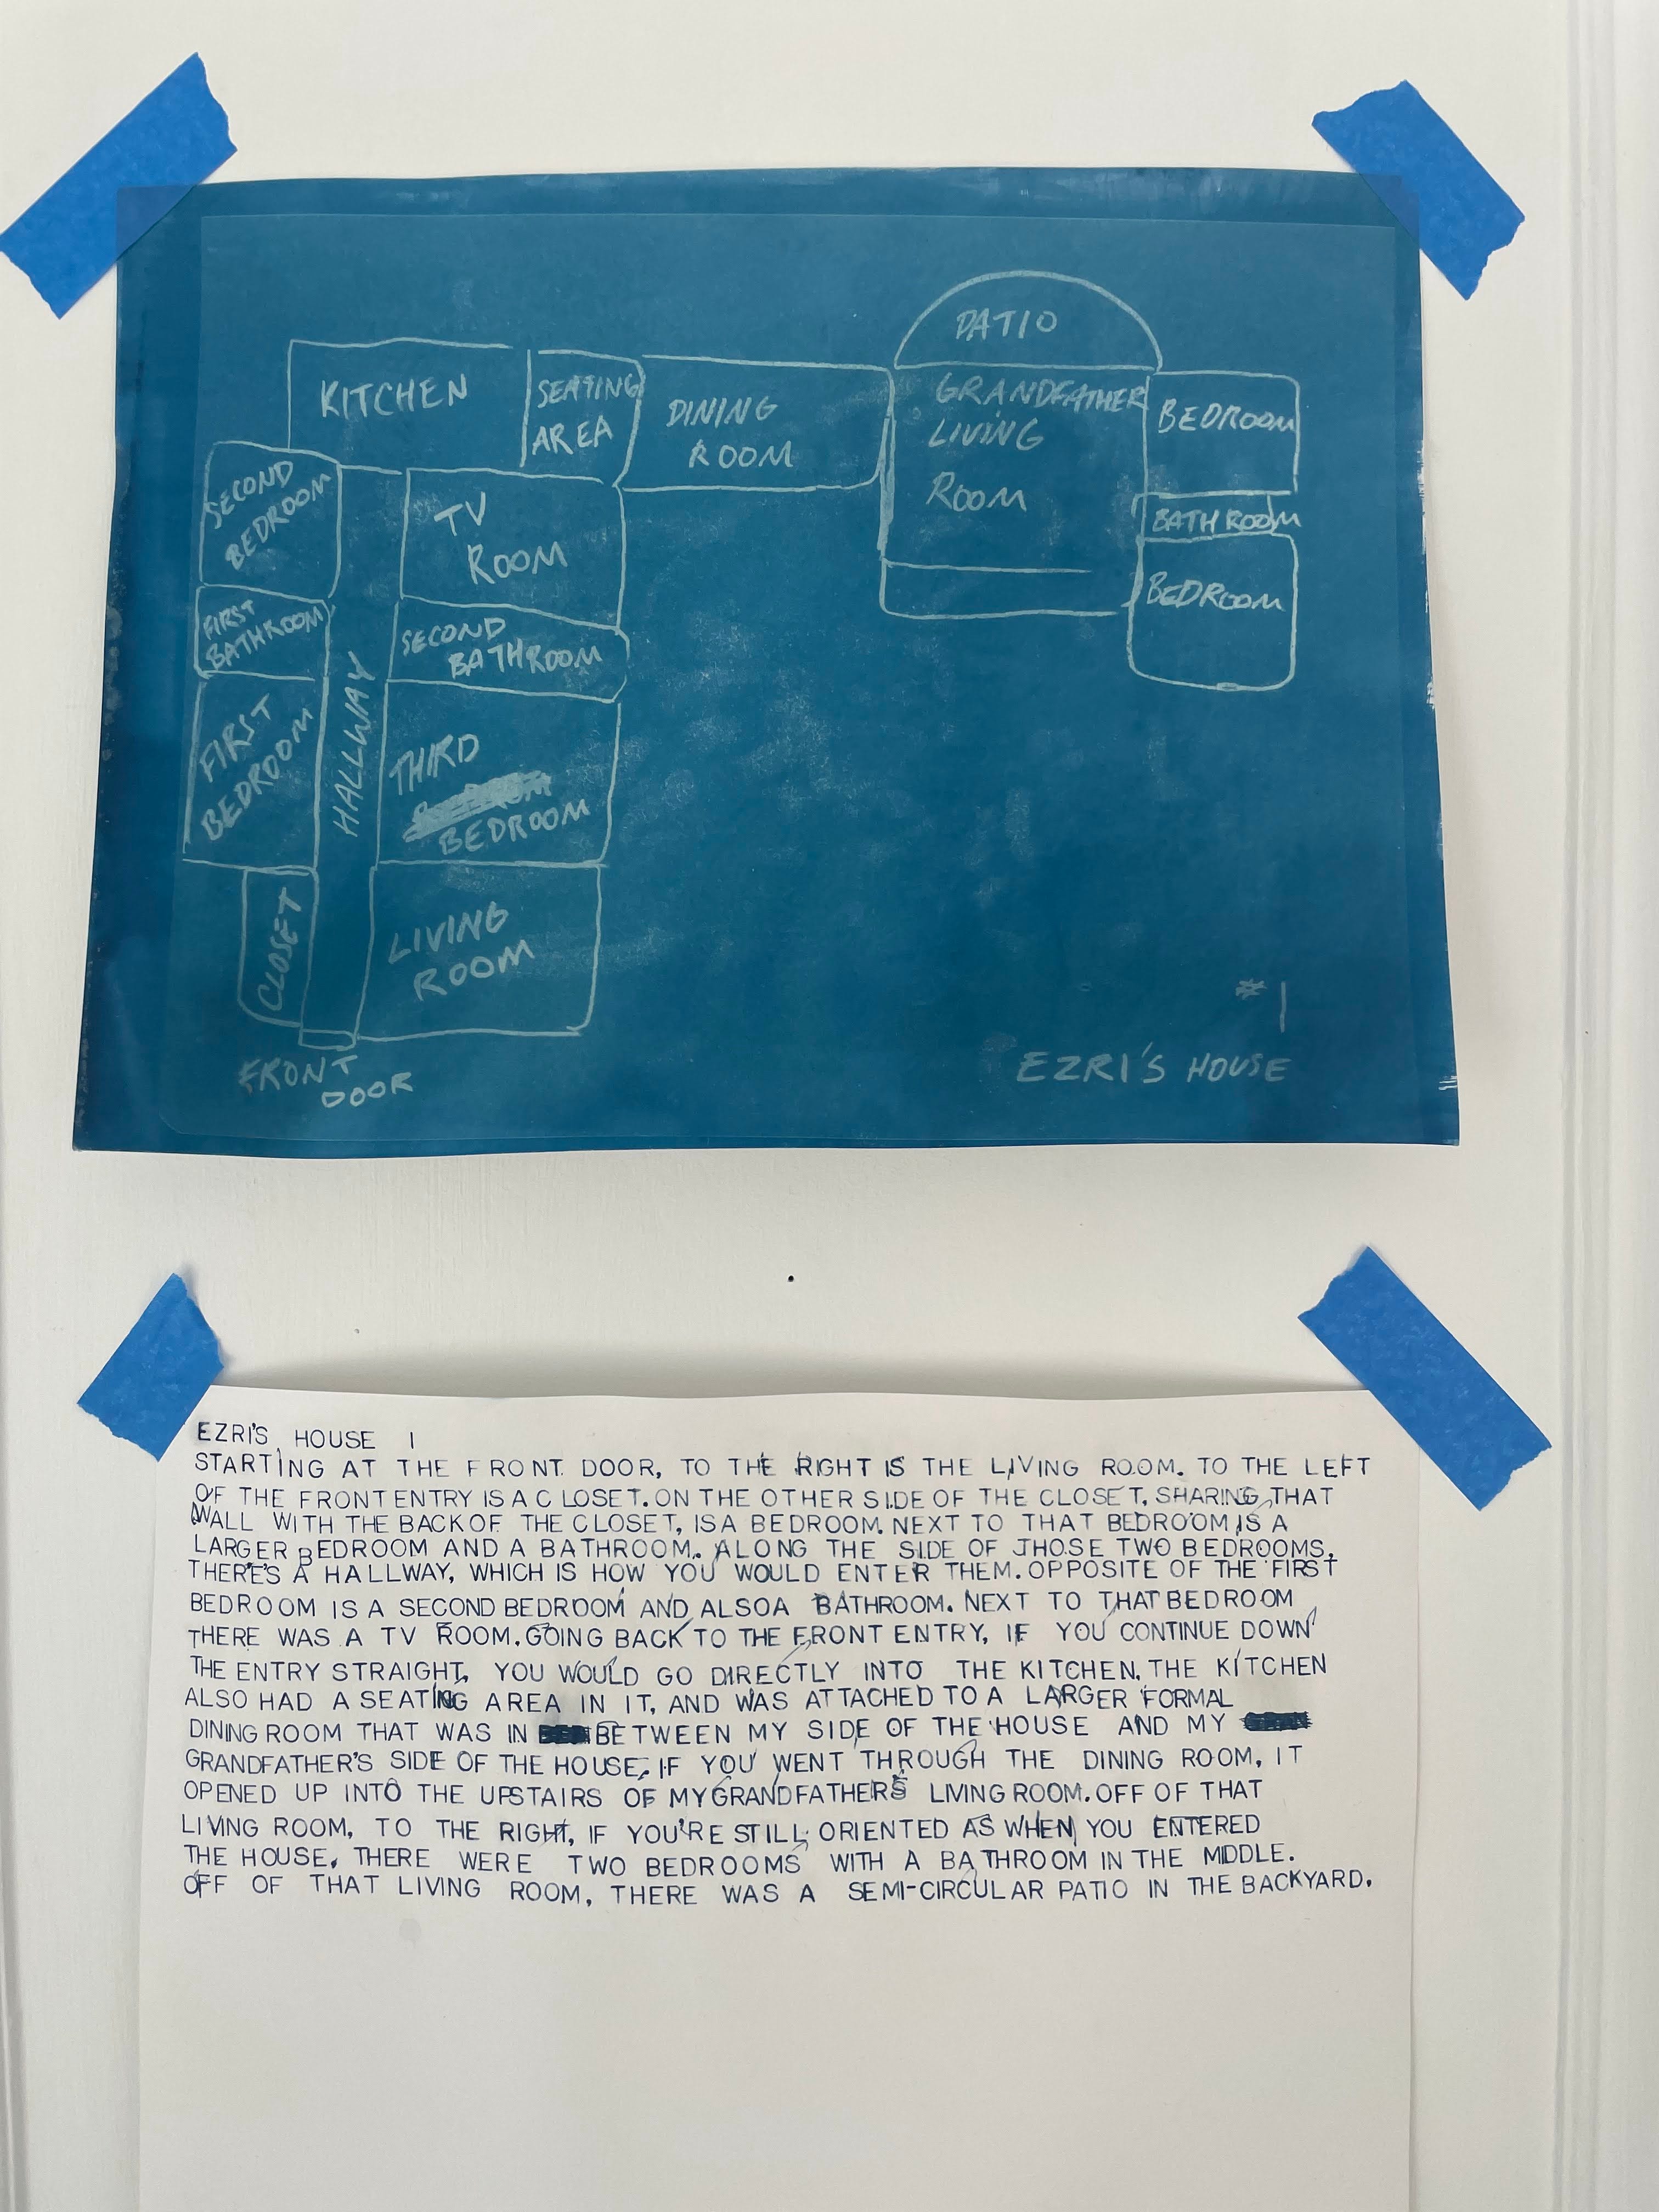 PATIO
KITCHEN
SEATING
AREA
DINING
ROOM
GRANDFATHER
LIVING
ROOM
BEDROOM
BATHROOM
BEDROOM
SECOND
BEDROOM
TV
ROOM
FIRST
BATHROOM
SECOND
BATHROOM
HALLWAY
FIRST
BEDROOM
THIRD
BEDROOM
CLOSET
LIVING
ROOM
FRONT
DOOR
#1
EZRI'S HOUSE
EZRI'S HOUSE 1
STARTING AT THE FRONT DOOR, TO THE RIGHT IS THE LIVING ROOM. TO THE LEFT
OF THE FRONT ENTRY IS A CLOSET. ON THE OTHER SIDE OF THE CLOSET, SHARING THAT
WALL WITH THE BACK OF THE CLOSET, IS A BEDROOM. NEXT TO THAT BEDROOM IS A
LARGER BEDROOM AND A BATHROOM. ALONG THE SIDE OF THOSE TWO BEDROOMS,
THERE'S A HALLWAY, WHICH IS HOW YOU WOULD ENTER THEM. OPPOSITE OF THE FIRST
BEDROOM IS A SECOND BEDROOM AND ALSO A BATHROOM. NEXT TO THAT BEDROOM
THERE WAS A TV ROOM. GOING BACK TO THE FRONT ENTRY, IF YOU CONTINUE DOWN
THE ENTRY STRAIGHT, YOU WOULD GO DIRECTLY INTO THE KITCHEN. THE KITCHEN
ALSO HAD A SEATING AREA IN IT, AND WAS ATTACHED TO A LARGER FORMAL
DINING ROOM THAT WAS IN BETWEEN MY SIDE OF THE HOUSE AND MY
GRANDFATHER'S SIDE OF THE HOUSE. IF YOU WENT THROUGH THE DINING ROOM, IT
OPENED UP INTO THE UPSTAIRS OF MY GRANDFATHER'S LIVING ROOM. OFF OF THAT
LIVING ROOM, TO THE RIGHT, IF YOU'RE STILL ORIENTED AS WHEN YOU ENTERED
THE HOUSE, THERE WERE TWO BEDROOMS WITH A BATHROOM IN THE MIDDLE.
OFF OF THAT LIVING ROOM, THERE WAS A SEMI-CIRCULAR PATIO IN THE BACKYARD.